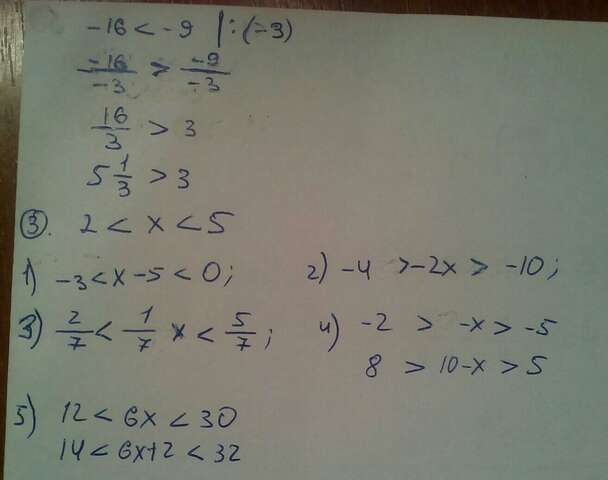 -16 < -9 | : (-3)
-16/-3 > -9/-3
16/3 > 3
5 1/3 > 3
③. 2 < x < 5
1) -3 < x - 5 < 0; 2) -4 > -2x > -10;
3) 2/7 < 1/7 x < 5/7; 4) -2 > -x > -5
8 > 10-x > 5
5) 12 < 6x < 30
14 < 6x+2 < 32